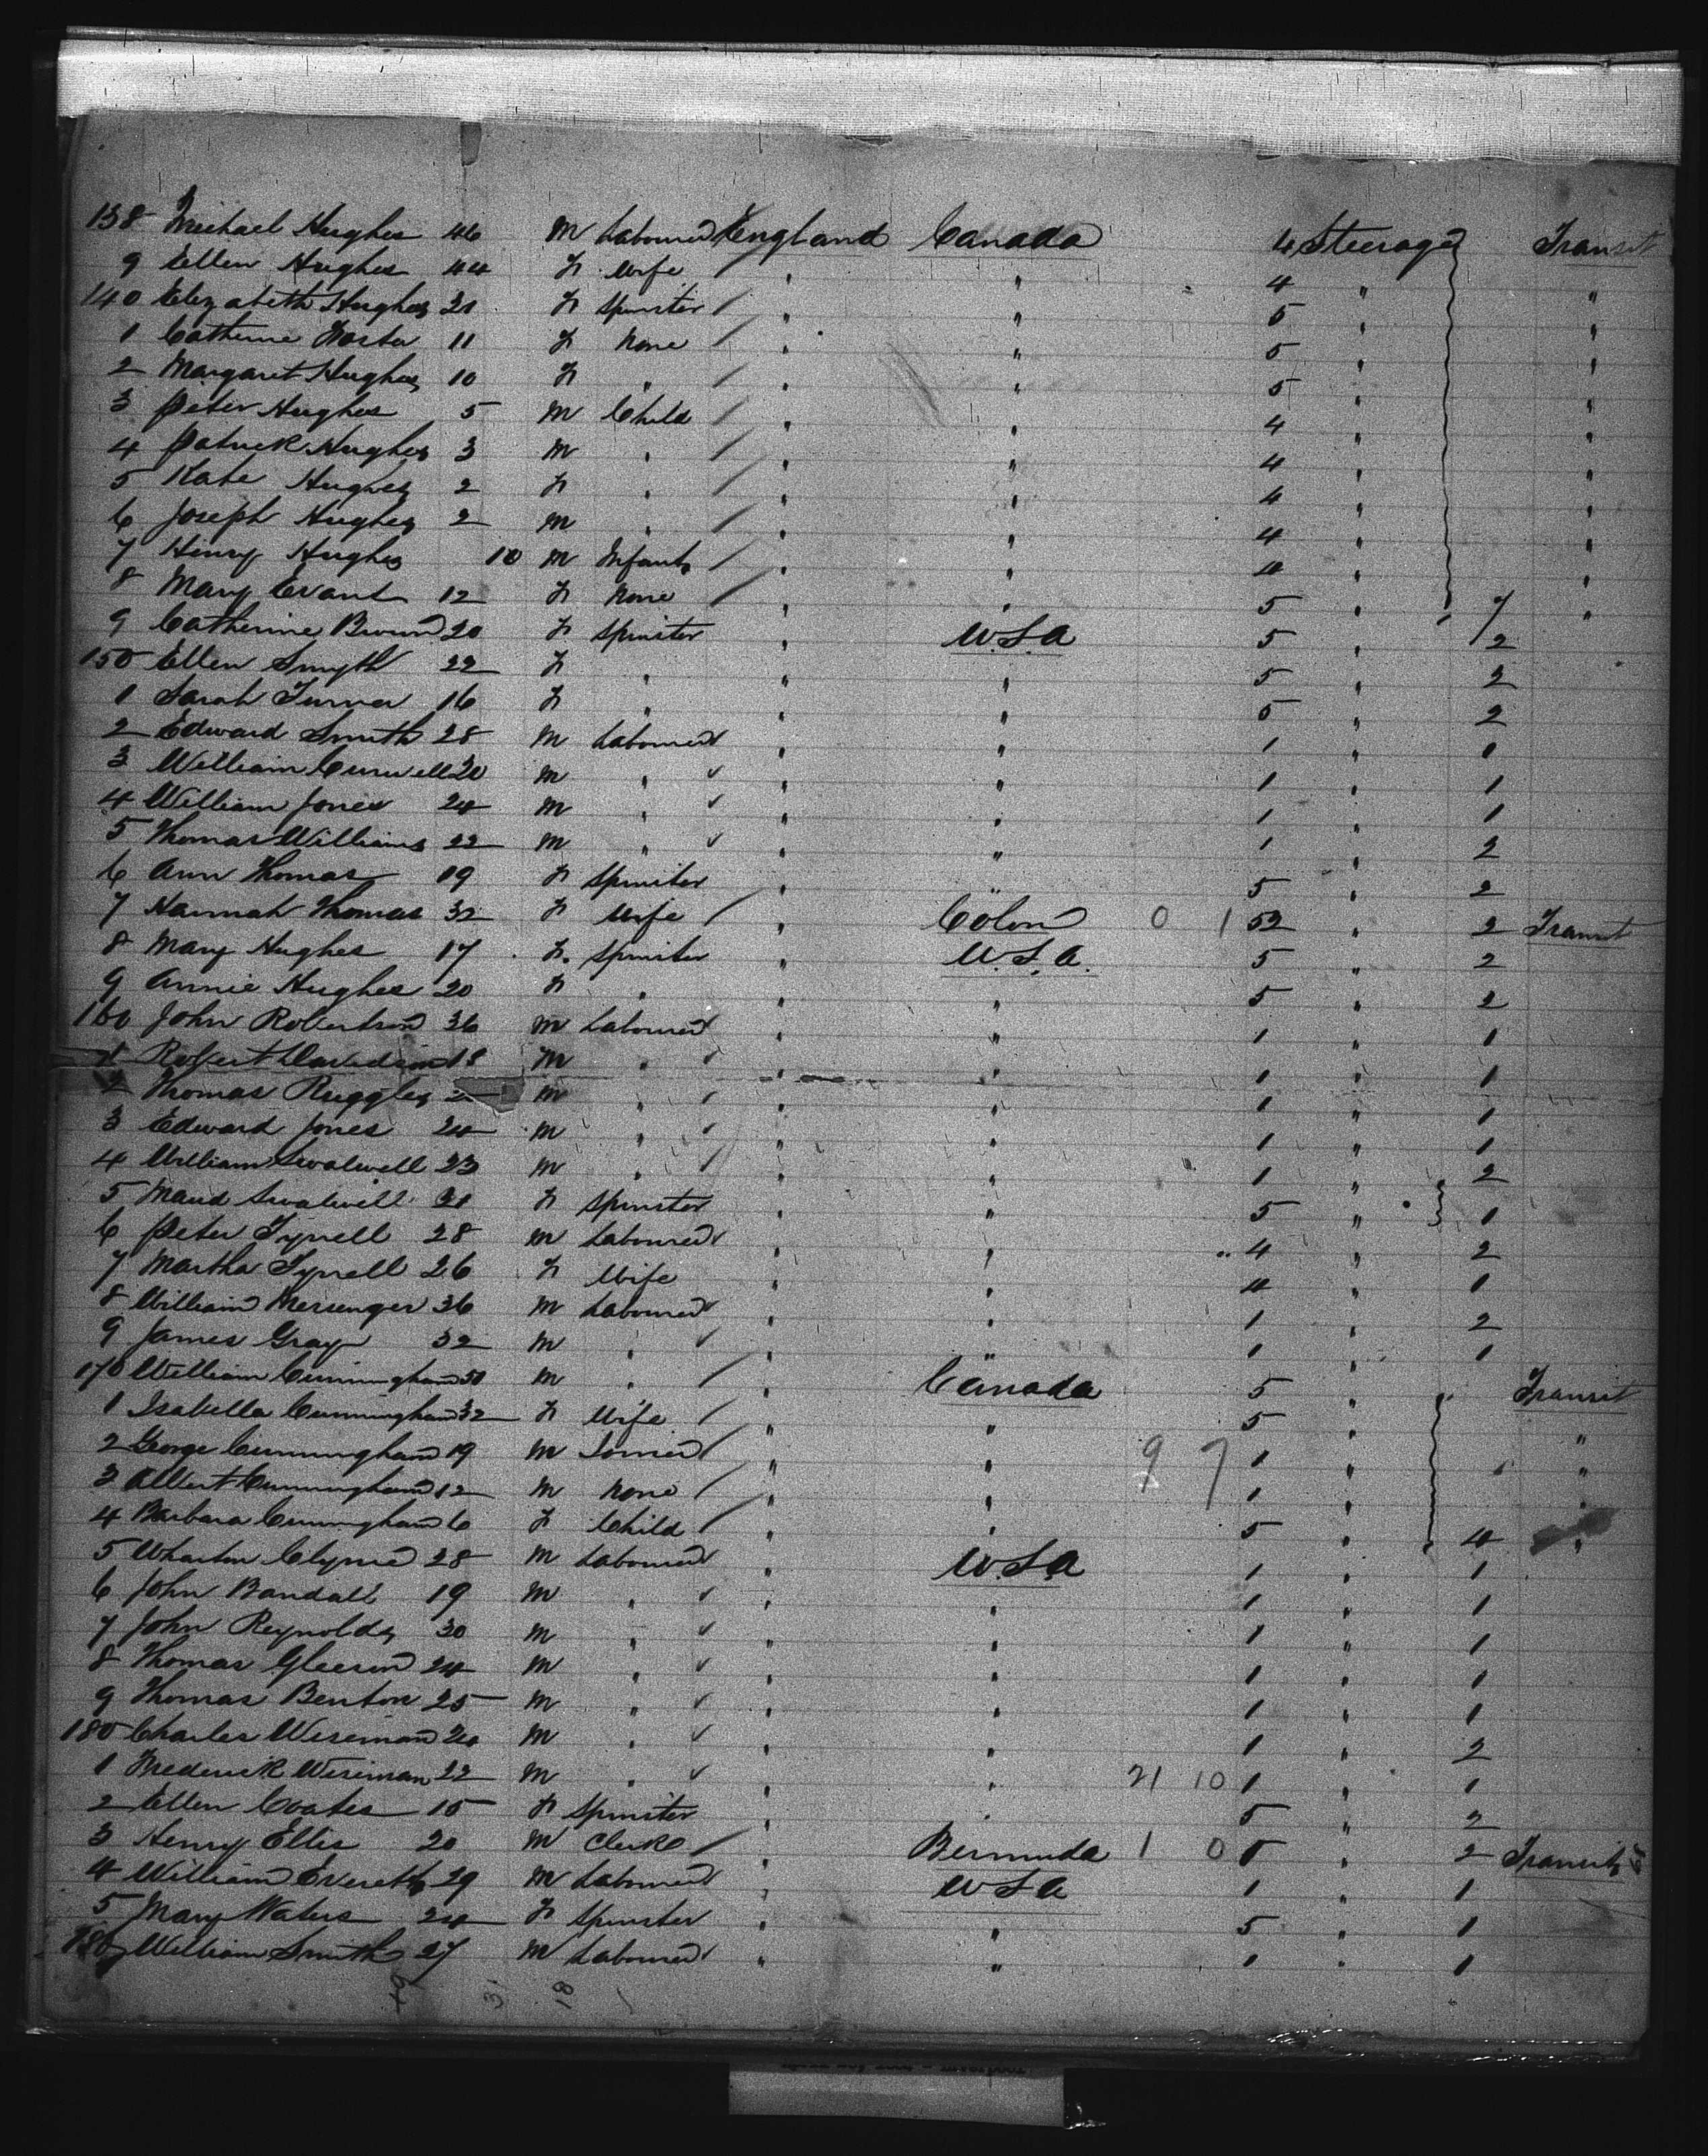 138 Michael Hughes 46 M Labourer England Canada 4 Steerage Transit
9 Ellen Hughes 44 F Wife / " " 4 " "
140 Elizabeth Hughes 21 F Spinster / " " 5 " "
1 Catherine Foster 11 F None / " " 5 " "
2 Margaret Hughes 10 F " / " " 5 " "
3 Peter Hughes 5 M Child / " " 4 " "
4 Patrick Hughes 3 M " / " " 4 " "
5 Kate Hughes 2 F " / " " 4 " "
6 Joseph Hughes 2 M " / " " 4 " "
7 Henry Hughes 10 M Infant / " " 4 " "
8 Mary Evans 12 F None / " " 5 " 7 "
9 Catherine Brown 20 F Spinster " U.S.A 5 " 2
150 Ellen Smyth 22 F " " " 5 " 2
1 Sarah Turner 16 F " " " 5 " 2
2 Edward Smith 28 M Labourer " " 1 " 1
3 William 20 M " " " 1 " 1
4 William Jones 24 M " " " 1 " 1
5 Thomas Williams 22 M " " " 1 " 2
6 Ann Thomas 19 F Spinster " " 5 " 2
7 Hannah Thomas 32 F Wife / " Colon 0 1 52 " 2 Transit
8 Mary Hughes 17 F. Spinster " U.S.A. 5 " 2
9 Annie Hughes 20 F " " " 5 " 2
160 John Robertson 36 M Labourer " " 1 " 1
1 Robert Davidson 18 M " " " 1 " 1
2 Thomas Ruggles M " " " 1 " 1
3 Edward Jones 24 M " " " 1 " 1
4 William Swalwell 23 M " " " 1 " 2
5 Maud Swalwell 21 F Spinster " " 5 " 1
6 Peter Tyrell 28 M Labourer " " 4 " 2
7 Martha Tyrell 26 F Wife " " 4 " 1
8 William Messenger 36 M Labourer " " 1 " 2
9 James Gray 32 M " " " 1 " 1
170 William Cunningham 50 M " / " Canada 5 " Transit
1 Isabella Cunningham 32 F Wife / " " 5 " "
2 George Cunningham 19 M / " " 9 7 1 " "
3 Albert Cunningham 12 M None / " " 1 " "
4 Barbara Cunningham 6 F Child / " " 5 " 4 "
5 Wharton Clyme 28 M Labourer " U.S.A 1 " 1
6 John Randall 19 M " " " 1 " 1
7 John Reynolds 30 M " " " 1 " 1
8 Thomas Gleeson 24 M " " " 1 " 1
9 Thomas Benton 25 M " " " 1 " 1
180 Charles Wiseman 24 M " " " 1 " 2
1 Frederick Wiseman 22 M " " " 21 10 1 " 1
2 Ellen Coates 15 F Spinster " " 5 " 2
3 Henry Ellis 20 M Clerk / " Bermuda 1 0 5 " 2 Transit
4 William Everett 29 M Labourer " U S A 1 " 1
5 Mary Waters 24 F Spinster " " 5 " 1
186 William Smith 27 M Labourer " " 1 " 1
49 31 18